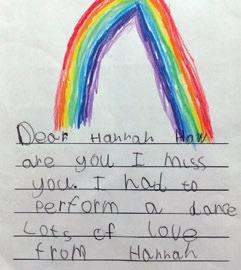 Dear Hannah How
are you I miss
you. I had to
perform a dance
Lots of love
from Hannah